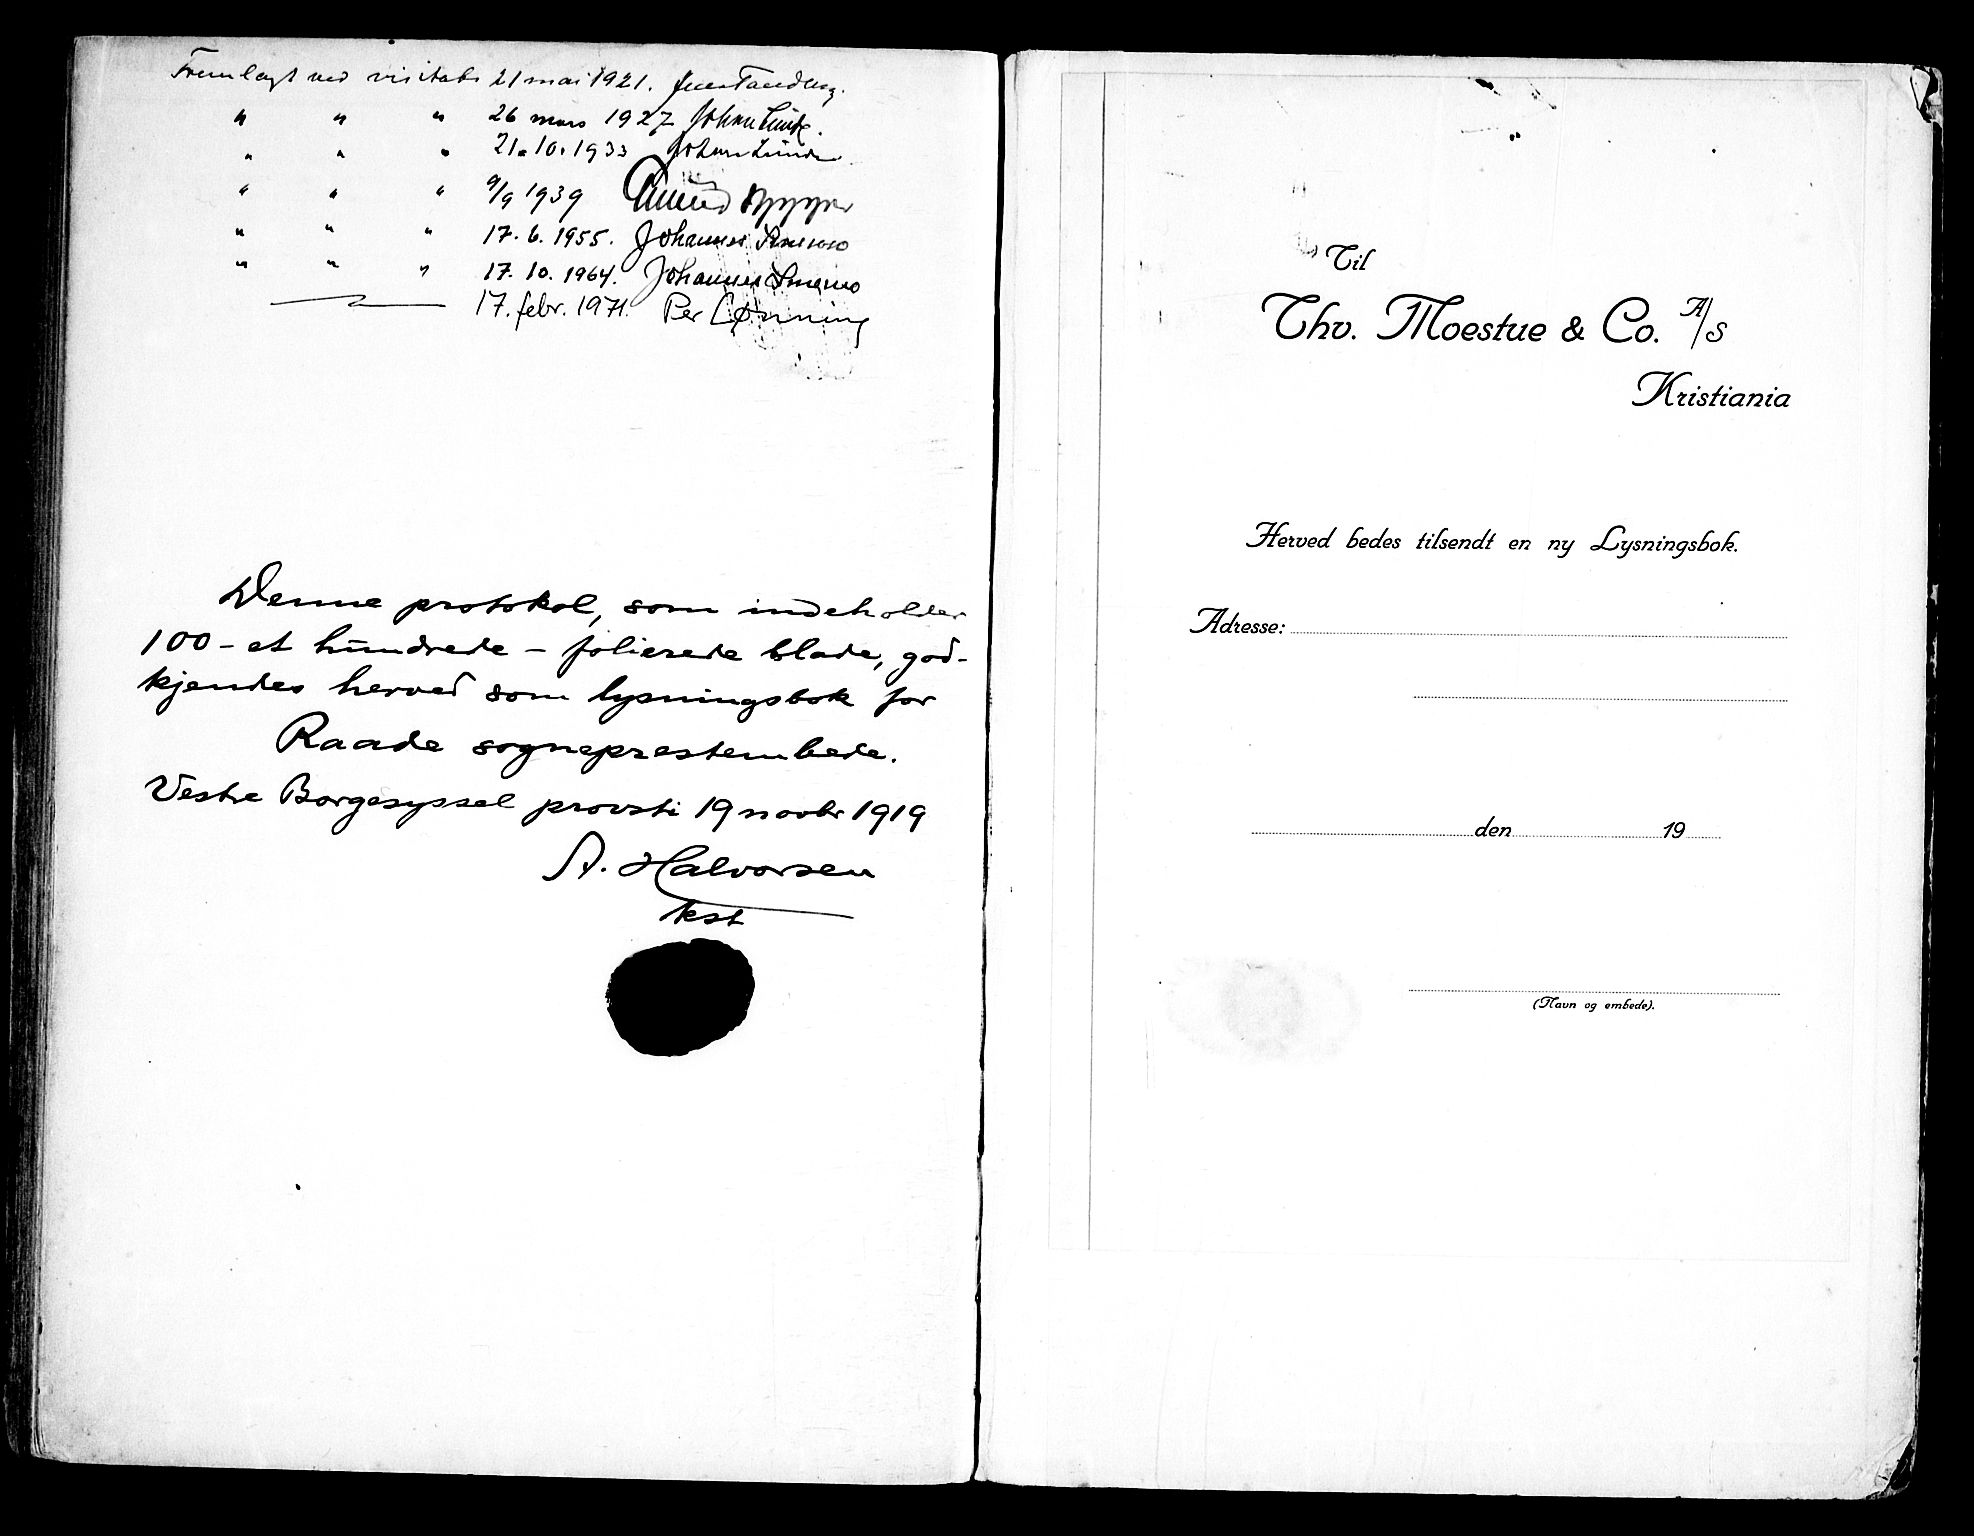 Fremlagt ved visitats 21 mai 1921. Jens Tandberg.
" " " 26 mars 1927 Johan Lunde.
" " " 21.10.1933 Johan Lunde
" " " 9/9 1939
" " " 17.6.1955. Johannes Smemo
" " " 17.10.1964. Johannes Smemo
17. febr. 1971. Per Lønning
Denne protokol, som indeholder
100 - et hundrede - folierede blade, god-
kjendes herved som lysningsbok for
Raade sogneprestembede.
Vestre Borgesyssel provsti 19 novbr 1919
A. Halvorsen
kst
Til
Thv. Moestue & Co. A/S
Kristiania
Herved bedes tilsendt en ny Lysningsbok.
Adresse:
den 19
(Navn og embede).